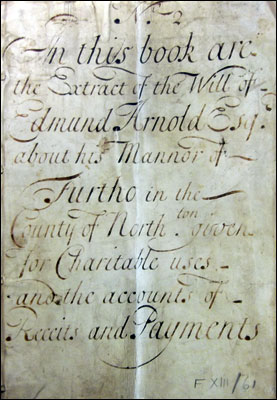 No. 2
In this book are
the Extract of the Will of
Edmund Arnold Esq.
about his Mannor of
Furtho in the
County of North.ton given
for Charitable uses
and the accounts of
Receits and Payments
F XIII / 61